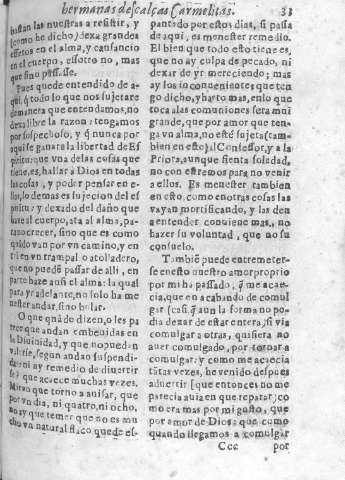 hermanas descalças Carmelitas. 33
bastan las nuestras a resistir, y
(como he dicho) dexa grandes
efetos en el alma, y cansancio
en el cuerpo, essotro no, mas
que sino passasse.
Pues quede entendido de a-
qui, q̃ todo lo que nos sujetare
de manera que entendamos, no
dexa libre la razon; tengamos
por sospechoso, y q̃ nunca por
aqui se ganara la libertad de Es
piritu: que vna de las cosas que
tiene, es, hallar a Dios en todas
las cosas, y poder pensar en e-
llo, lo demas es sujecion del es
piritu: y dexado del daño que
haze al cuerpo, ata al alma, pa-
ra no crecer, sino que es como
quãdo van por vn camino, y en
trã en vn trampal o atolladero,
que no puedẽ passar de alli, en
parte haze ansi el alma: la qual
para yr adelante, no solo ha me
nester andar, sino bolar.
O que quãdo dizen, o les pa
rece que andan embeuidas en
la Diuinidad, y que no puedan
valerse, segun andan suspendi-
das ni ay remedio de diuertir
se, que acaece muchas vezes.
Miren que torno a auisar, que
por vn dia, ni quatro, ni ocho,
no ay que temer que no es mu
cho vn natural flaco quede es-
pantado por estos dias, si passa
de aqui, es menester remedio.
El bien que todo esto tiene es,
que no ay culpa de pecado, ni
dexar de yr mereciendo; mas
ay los inconuenientes que ten
go dicho, y harto mas, en lo que
toca a las comuniones sera mui
grande, que por amor que ten-
ga vn alma, no esté sujeta (tam-
bien en esto) al Confessor, y a la
Priora, aunque sienta soledad,
no con estremos para no venir
a ellos. Es menester tambien
en esto, como en otras cosas las
vayan mortificando, y las den
a entender conuiene mas, no
hazer su voluntad, que no su
consuelo.
Tambiẽ puede entremeter-
se en esto nuestro amor proprio
por mi ha passado, q̃ me acae-
cia, que en acabando de comul
gar (casi q̃ aun la forma no po-
dia dexar de estar entera) si via
comulgar a otras, quisiera no
auer comulgado, por tornar a
comulgar: y como me acaecia
tãtas vezes, he venido despues
aduertir [que entonces no me
parecia auia en que reparar] co
mo era mas por mi gusto, que
por amor de Dios: que como
quando llegamos a comulgar
Ccc por